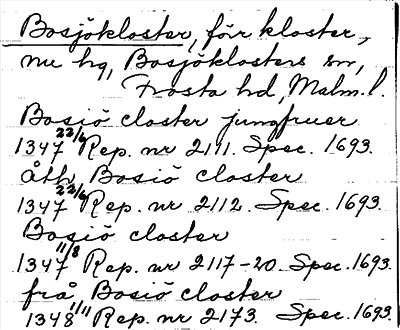 Bosjökloster, förr kloster,
nu hg, Bosjöklosters sn,
Frosta hd, Malm. l.
Bosiö closter jungfruer
1347 22/6 Rep. nr 2111. Spec. 1693.
åth Bosiö closter
1347 22/6 Rep. nr 2112. Spec. 1693.
Bosiö closter
1347 11/8 Rep. nr 2117-20. Spec. 1693.
från Bosiö closter
1348 1/11 Rep. nr 2173. Spec. 1693.